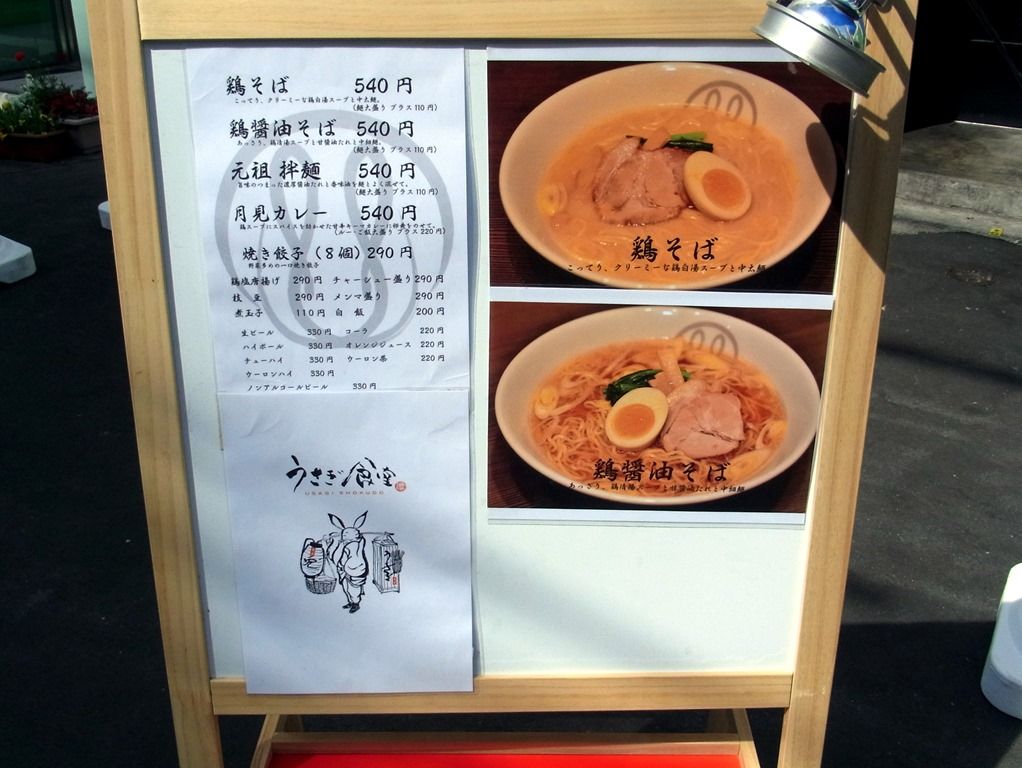 鶏そば 540円
こってり、クリーミーな鶏白湯スープと中太麺。
(麺大盛り プラス110円)
鶏醤油そば 540円
あっさり、鶏清湯スープと甘醤油だれと中細麺。
(麺大盛り プラス110円)
元祖 拌麺 540円
旨味のつまった濃厚醤油だれと香味油を麺とよく混ぜて。
(麺大盛り プラス110円)
月見カレー 540円
鶏スープにスパイスを効かせた甘辛キーマカレーに卵黄をのせて。
(ルー・ご飯大盛り プラス220円)
焼き餃子(8個)290円
野菜多めの一口焼き餃子
鶏塩唐揚げ 290円 チャーシュー盛り 290円
枝豆 290円 メンマ盛り 290円
煮玉子 110円 白飯 200円
生ビール 330円 コーラ 220円
ハイボール 330円 オレンジジュース 220円
チューハイ 330円 ウーロン茶 220円
ウーロンハイ 330円
ノンアルコールビール 330円
うさぎ食堂
USAGI SHOKUDO
うさぎ
鶏そば
こってり、クリーミーな鶏白湯スープと中太麺
鶏醤油そば
あっさり、鶏清湯スープと甘醤油だれと中細麺